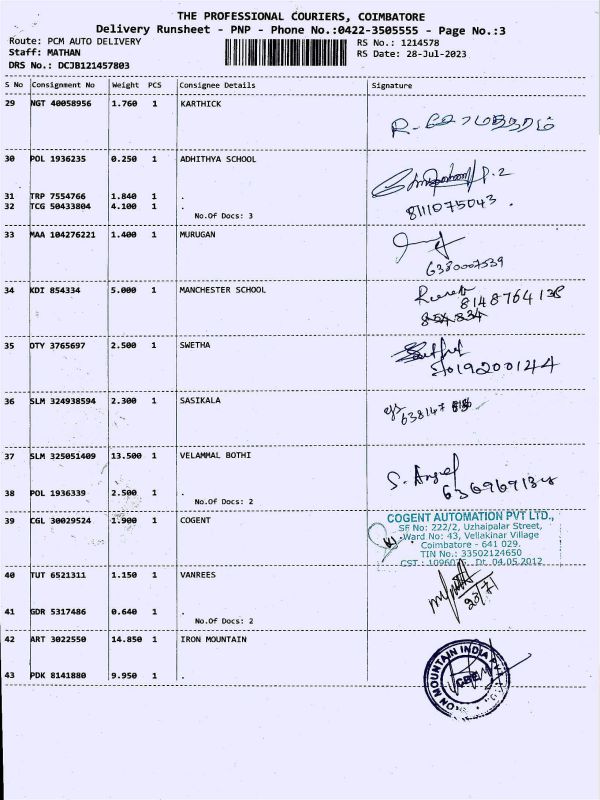 THE PROFESSIONAL COURIERS, COIMBATORE
Delivery Runsheet - PNP - Phone No.:0422-3505555 - Page No.:3
Route: PCM AUTO DELIVERY RS No.: 1214578
Staff: MATHAN RS Date: 28-Jul-2023
DRS No.: DCJB121457803
S No Consignment No Weight PCS Consignee Details Signature
29 NGT 40058956 1.760 1 KARTHICK
30 POL 1936235 0.250 1 ADHITHYA SCHOOL
31 TRP 7554766 1.840 1 .
32 TCG 50433804 4.100 1 . 8111075043
No.Of Docs: 3
33 MAA 104276221 1.400 1 MURUGAN
6380007539
34 KDI 854334 5.000 1 MANCHESTER SCHOOL
8148764138
35 OTY 3765697 2.500 1 SWETHA
36 SLM 324938594 2.300 1 SASIKALA
37 SLM 325051409 13.500 1 VELAMMAL BOTHI
38 POL 1936339 2.500 1 .
No.Of Docs: 2
39 CGL 30029524 1.900 1 COGENT
COGENT AUTOMATION PVT LTD.,
SF No: 222/2, Uzhaipalar Street,
Ward No: 43, Vellakinar Village
Coimbatore - 641 029.
TIN No.: 33502124650
Dt. 04.05.2012
40 TUT 6521311 1.150 1 VANREES
41 GDR 5317486 0.640 1 .
No.Of Docs: 2
42 ART 3022550 14.850 1 IRON MOUNTAIN
43 PDK 8141880 9.950 1 .
MOUNTAIN INDIA